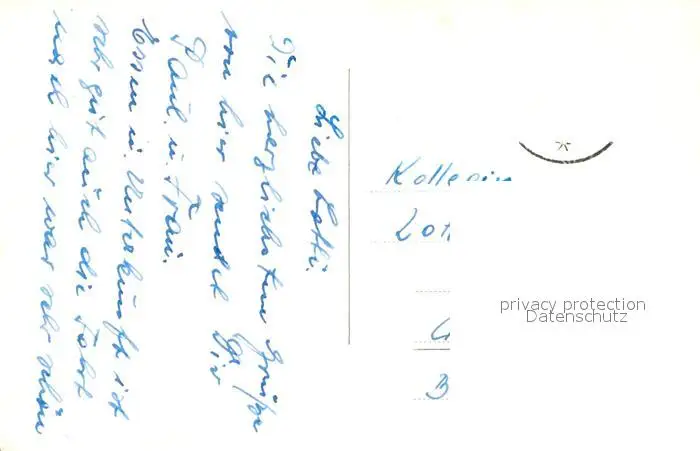 Liebe Lotti.
Die herzlichsten Grüße
von hier sendet Dir
Paul u. Frau.
Essen u. Unterkunft ist
sehr gut auch die Fahrt
nach hier war sehr schön
Kollegin
Lot
B
privacy protection
Datenschutz